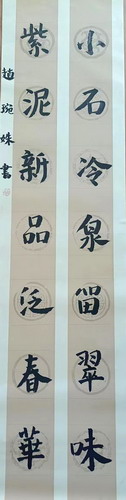 小石冷泉留翠味
紫泥新品泛春華
趙琬姝書